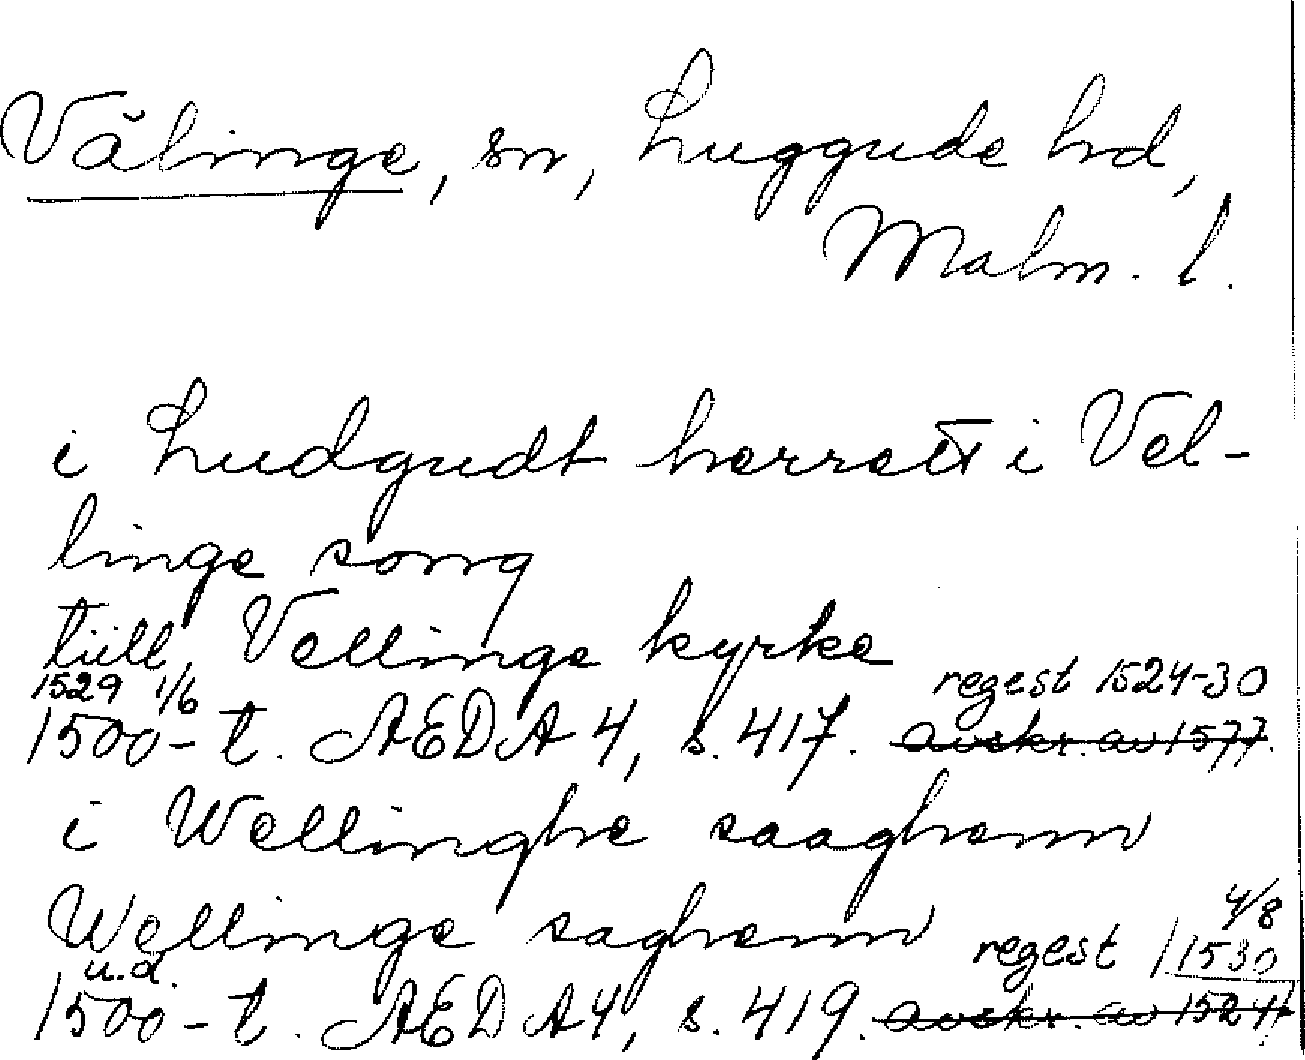 Välinge, sn, Luggude hd,
Malm. l.
i Ludgudt herrett i Vel-
linge song
tiill, Vellinge kyrke
1529 1/6 regest 1524-30
1500-t. AEDA 4, s. 417. avskr. av 1577.
i Wellinghe saaghenn
Wellinge saghenn 4/8
u.d. regest 1530
1500-t. AEDA4, s. 419. avskr. av 1524